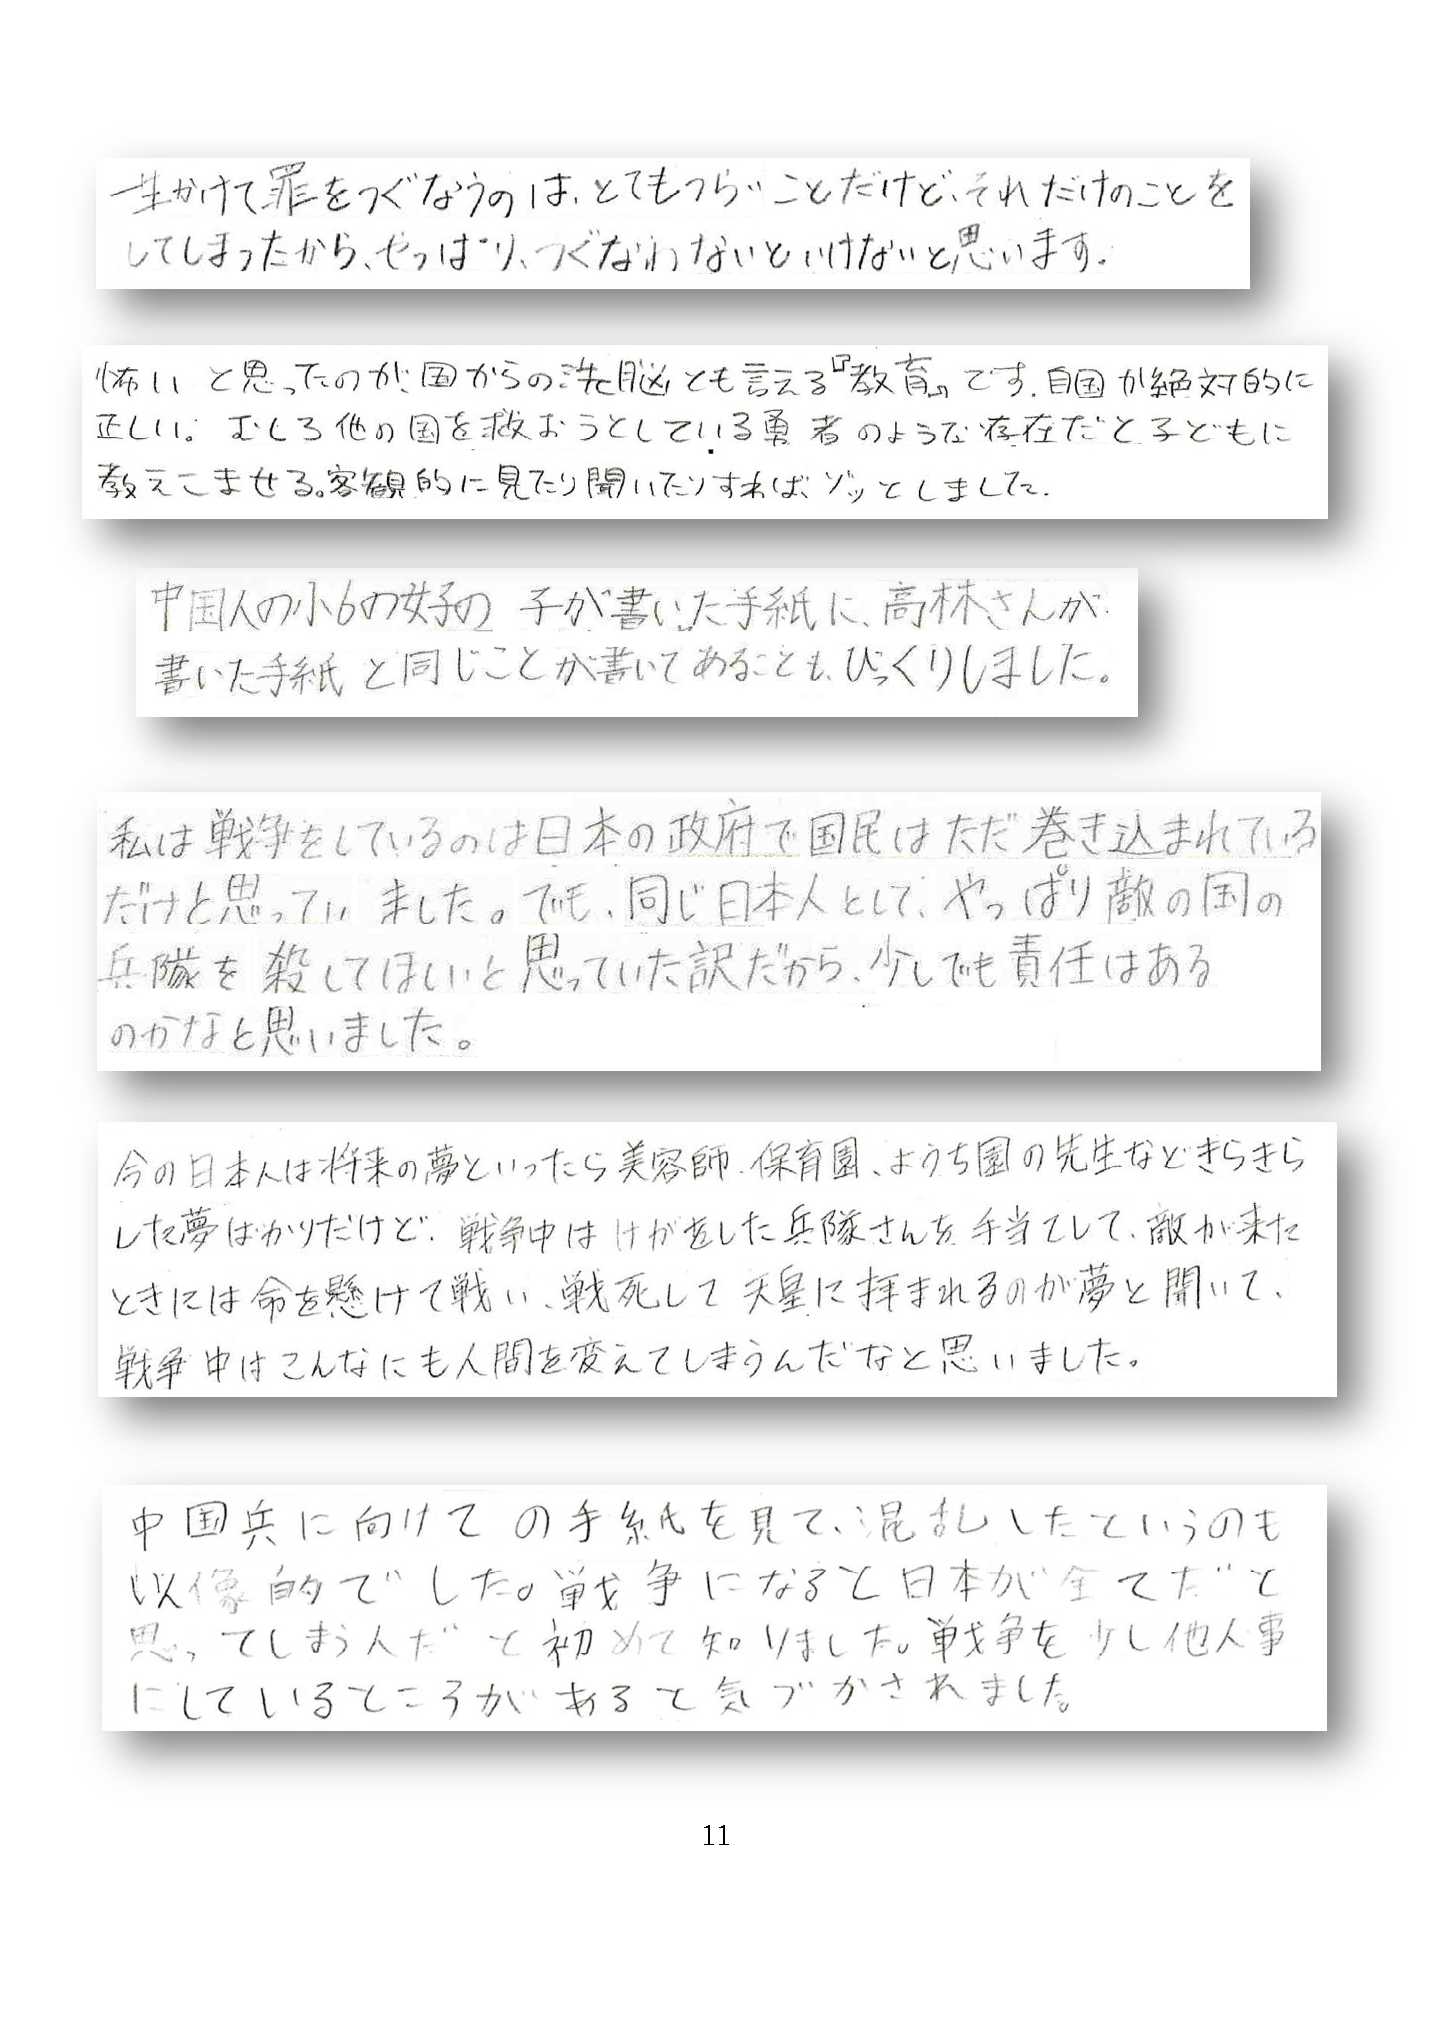 一生かけて罪をつぐなうのは、とてもつらいことだけど、それだけのことを
してしまったから、やっぱり、つぐなわないといけないと思います。
怖いと思ったのが、国からの洗脳とも言える『教育』です。自国が絶対的に
正しい。むしろ他の国を救おうとしている勇者のような存在だと子どもに
教えこませる。客観的に見たり聞いたりすれば、ゾッとしました。
中国人の小6の女子の子が書いた手紙に、高林さんが
書いた手紙と同じことが書いてあることも、びっくりしました。
私は戦争をしているのは日本の政府で国民はただ巻き込まれている
だけと思っていました。でも、同じ日本人として、やっぱり敵の国の
兵隊を殺してほしいと思っていた訳だから、少しでも責任はある
のかなと思いました。
今の日本人は将来の夢といったら美容師、保育園、ようち園の先生などきらきら
した夢ばかりだけど、戦争中はけがをした兵隊さんを手当てして、敵が来た
ときには命を懸けて戦い、戦死して天皇に拝まれるのが夢と聞いて、
戦争中はこんなにも人間を変えてしまうんだなと思いました。
中国兵に向けての手紙を見て、混乱したというのも
印象的でした。戦争になると日本が全てだと
思ってしまう人だと初めて知りました。戦争を少し他人事
にしているところがあると気づかされました。
11